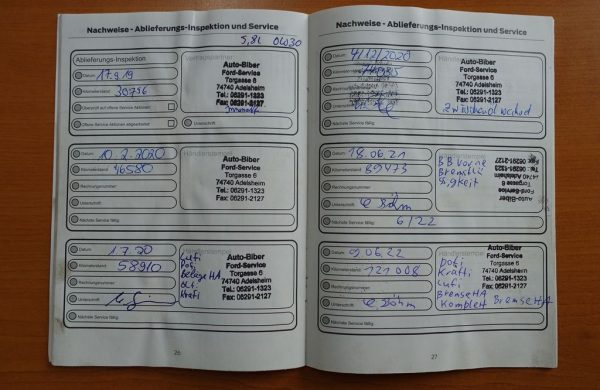 Nachweise - Ablieferungs-Inspektion und Service
5,8L 0W30
Ablieferungs-Inspektion
Vertragspartner
Datum 17.9.19
Kilometerstand 30756
Überprüft auf offene Service-Aktionen
Offene Service-Aktionen abgearbeitet
Unterschrift
Auto-Biber
Ford-Service
Torgasse 6
74740 Adelsheim
Tel.: 06291-1323
Fax: 06291-2127
Datum 10.2.2020
Kilometerstand 46580
Rechnungsnummer
Unterschrift
Nächste Service fällig
Händlerstempel
Auto-Biber
Ford-Service
Torgasse 6
74740 Adelsheim
Tel.: 06291-1323
Fax: 06291-2127
Datum
Kilometerstand 58910
Rechnungsnummer
Unterschrift
Nächste Service fällig
Lufi
Beläge HA
Ölfi
Krafi
Auto-Biber
Ford-Service
Torgasse 6
74740 Adelsheim
Tel.: 06291-1323
Fax: 06291-2127
26
Nachweise - Ablieferungs-Inspektion und Service
Datum 4/12/2020
Kilometerstand
Rechnungsnummer
Unterschrift
Nächste Service fällig
Auto-Biber
Ford-Service
Torgasse 6
74740 Adelsheim
Tel.: 06291-1323
Fax: 06291-2127
Datum 18.06.21
Kilometerstand 89473
Rechnungsnummer
Unterschrift Böhm
Nächste Service fällig 6/22
BB vorne
Auto-Biber
Ford-Service
Torgasse 6
74740 Adelsheim
Tel.: 06291-1323
Fax: 06291-2127
Datum 9.06.22
Kilometerstand 121008
Rechnungsnummer
Unterschrift Böhm
Nächste Service fällig
Auto-Biber
Ford-Service
Torgasse 6
74740 Adelsheim
Tel.: 06291-1323
Fax: 06291-2127
Pofi
Kraffi
Lufi
Bremse HA
Komplett Bremse HA
27